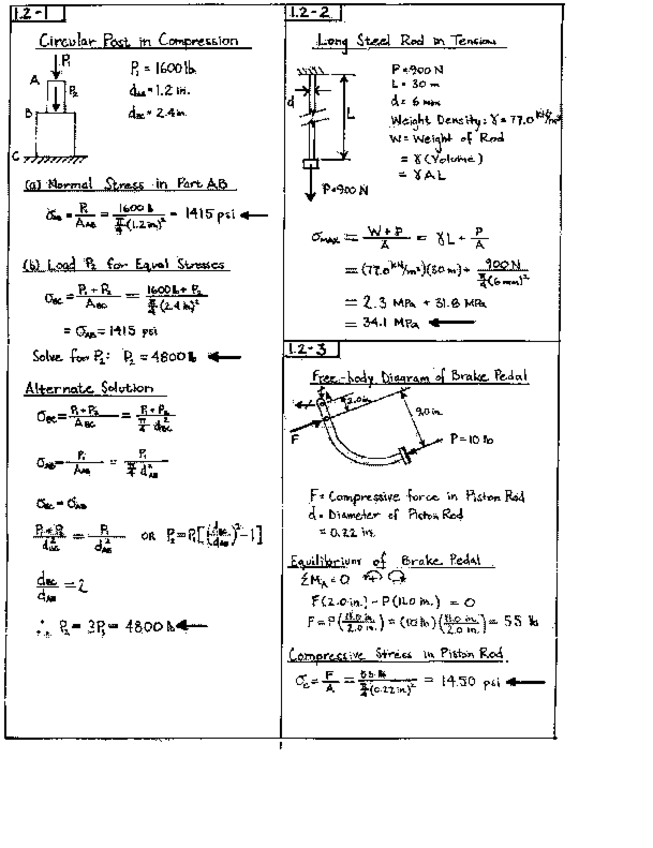 1.2-1
Circular Post in Compression
P₁
A
P₂
B
C
P₁ = 1600 lb
d_AB = 1.2 in.
d_BC = 2.4 in.
(a) Normal Stress in Part AB
σ_AB = P₁/A_AB = 1600 lb/(π/4 (1.2 in.)²) = 1415 psi
(b) Load P₂ for Equal Stresses
σ_BC = (P₁ + P₂)/A_BC = (1600 lb + P₂)/(π/4 (2.4 in.)²)
= σ_AB = 1415 psi
Solve for P₂: P₂ = 4800 lb
Alternate Solution
σ_BC = (P₁ + P₂)/A_BC = (P₁ + P₂)/(π/4 d²_BC)
σ_AB = P₁/A_AB = P₁/(π/4 d²_AB)
σ_BC = σ_AB
(P₁ + P₂)/d²_BC = P₁/d²_AB OR P₂ = P₁[(d_BC/d_AB)² - 1]
d_BC/d_AB = 2
∴ P₂ = 3P₁ = 4800 lb
1.2-2
Long Steel Rod in Tension
d
L
P=900 N
P = 900 N
L = 30 m
d = 6 mm
Weight Density: γ = 77.0 kN/m³
W = Weight of Rod
= γ (Volume)
= γ A L
σ_MAX = (W + P)/A = γL + P/A
= (77.0 kN/m³)(30 m) + 900 N/(π/4 (6 mm)²)
= 2.3 MPa + 31.8 MPa
= 34.1 MPa
1.2-3
Free-body Diagram of Brake Pedal
2.0 in.
9.0 in.
F
P = 10 lb
F = Compressive force in Piston Rod
d = Diameter of Piston Rod
= 0.22 in.
Equilibrium of Brake Pedal
ΣM_A = 0
F(2.0 in.) - P(11.0 in.) = 0
F = P(11.0 in./2.0 in.) = (10 lb)(11.0 in./2.0 in.) = 55 lb
Compressive Stress in Piston Rod
σ_c = F/A = 55 lb/(π/4 (0.22 in.)²) = 1450 psi